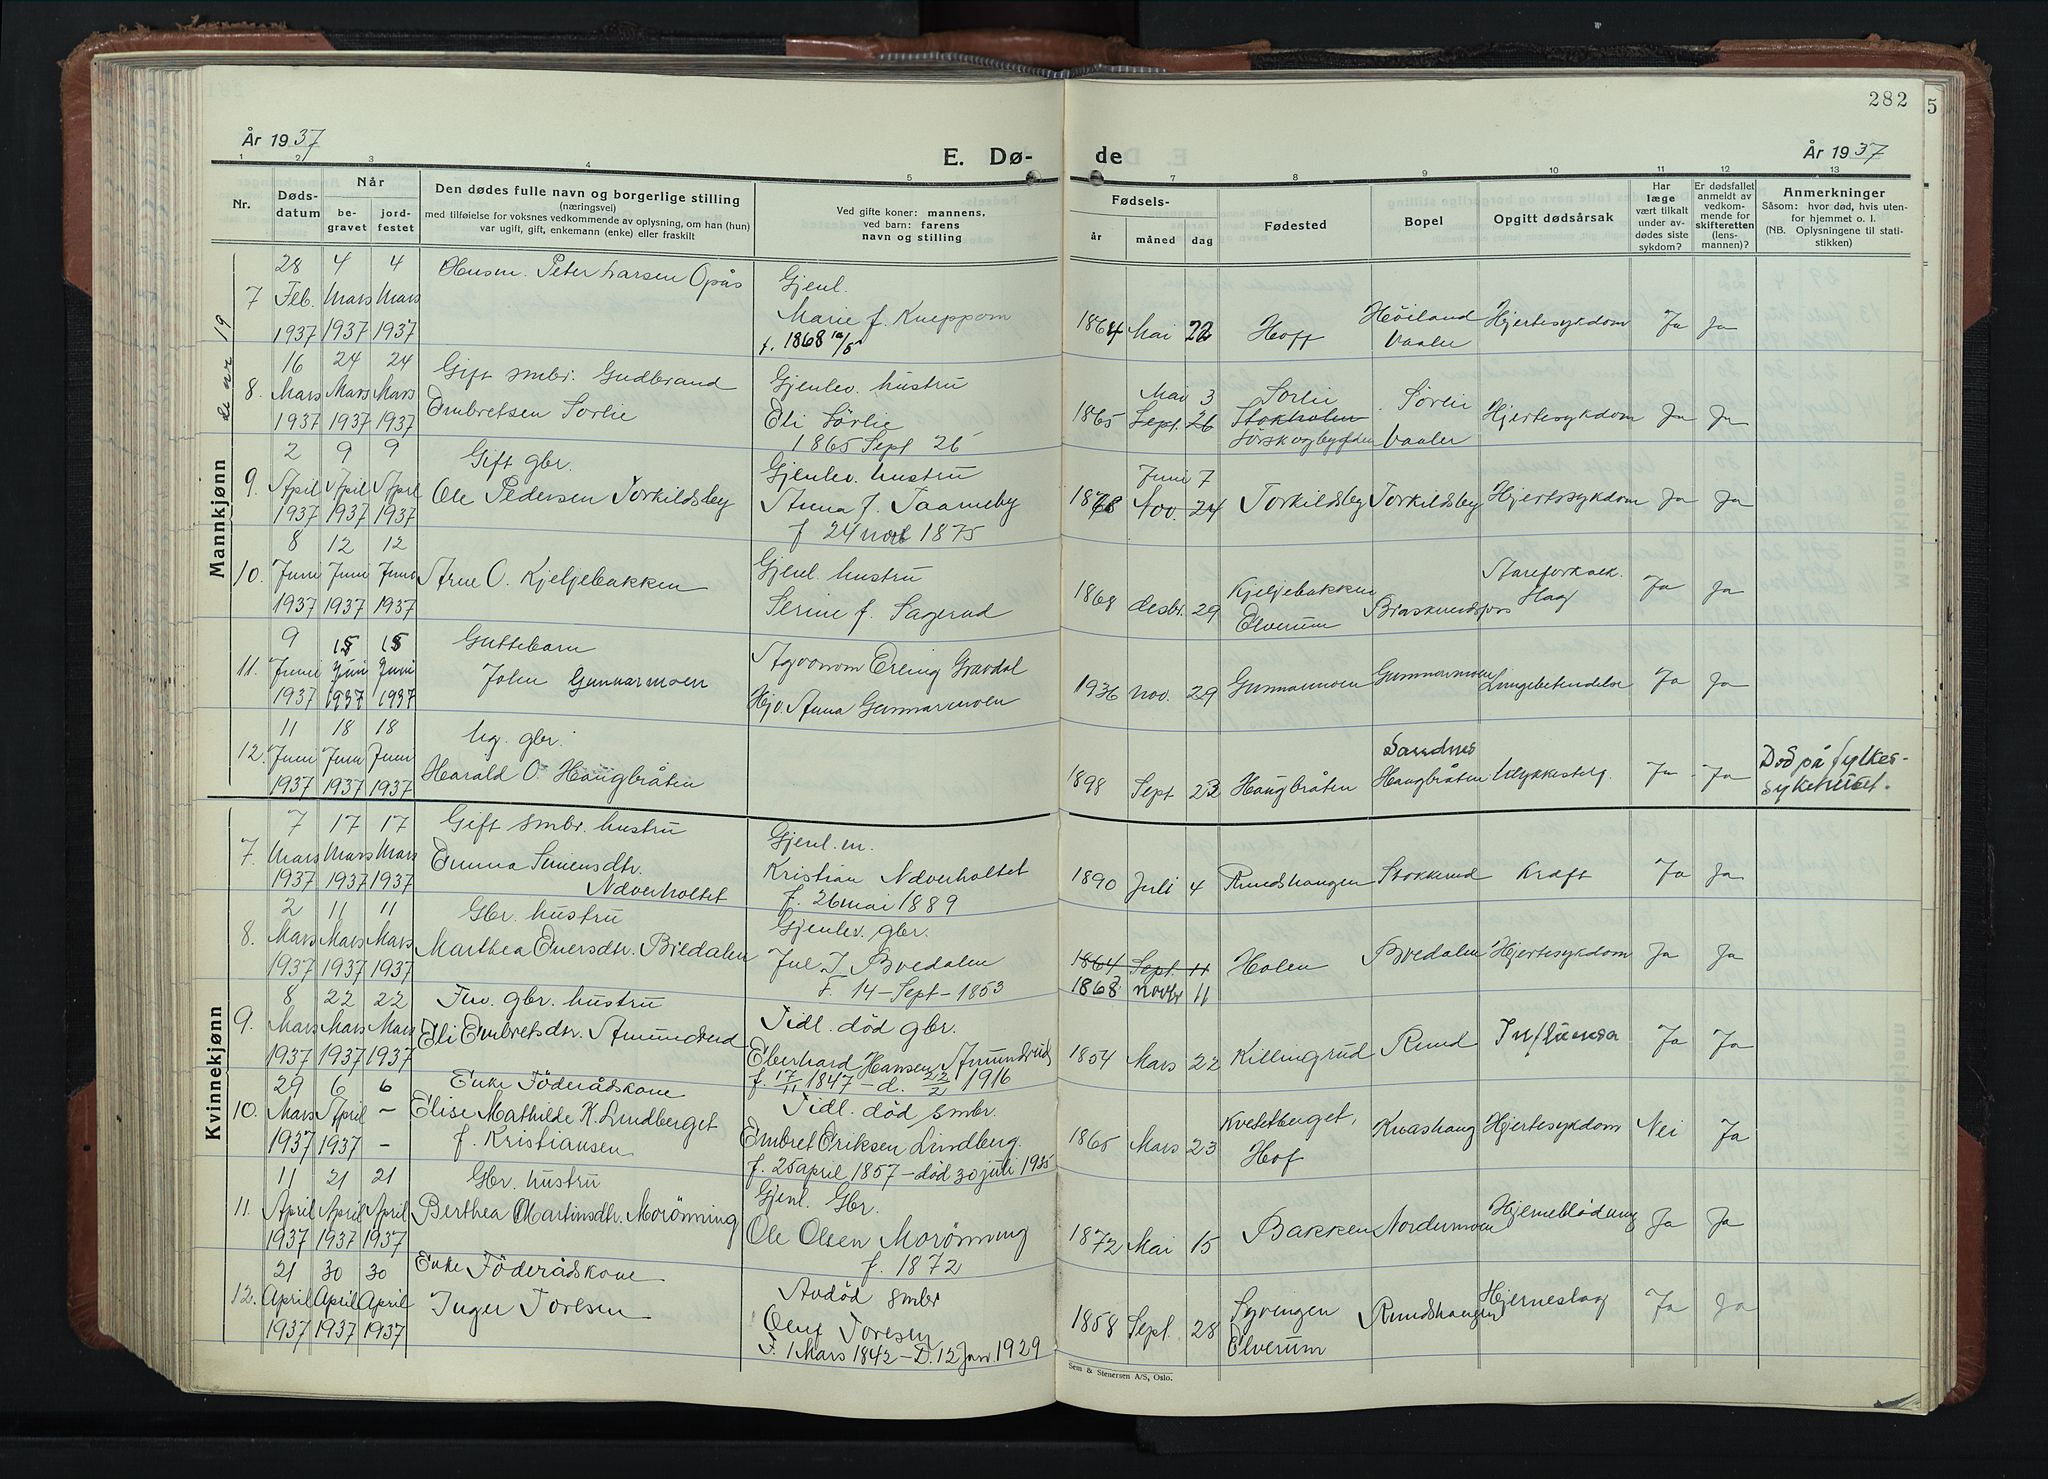 282
5
År 1937
E. Dø-
de
År 1937
1 2 3 4 5 7 8 9 10 11 12 13
Nr.
Døds-
datum
Når
be-
gravet
jord-
festet
Den dødes fulle navn og borgerlige stilling
(næringsvei)
med tilføielse for voksnes vedkommende av oplysning, om han (hun)
var ugift, gift, enkemann (enke) eller fraskilt
Ved gifte koner: mannens,
ved barn: farens
navn og stilling
Fødsels-
år
måned
dag
Fødested
Bopel
Opgitt dødsårsak
Har
læge
vært tilkalt
under av-
dødes siste
sykdom?
Er dødsfallet
anmeldt av
vedkom-
mende for
skifteretten
(lens-
mannen)?
Anmerkninger
Såsom: hvor død, hvis uten-
for hjemmet o. l.
(NB. Oplysningene til stati-
stikken)
Mannkjønn
7
28 Feb. 1937
4 Mars 1937
4 Mars 1937
Peter Larsen Opås
Gjenl.
Marie f. Kneppom
f. 1868
1864 Mai 22
Hoff
Høiland
Vaaler
Hjertesykdom
Ja
Ja
8.
16 Mars 1937
24 Mars 1937
24 Mars 1937
Gift smbr. Gudbrand
Embretsen Sørlie
Gjenlev. hustru
Eli Sørlie
1865 Sept 26
Mai 3
1865 Sept. 26
Sørlie
Stokholen
Sørskogbygden
Sørlie
Vaaler
Hjertesykdom
Ja
Ja
9.
2 April 1937
9 April 1937
9 April 1937
Gift gbr.
Ole Pedersen Torkildsby
Gjenlev. hustru
Anna f. Taaneby
f 24 nov 1875
Juni 7
Nov. 24
Torkildsby
Torkildsby
Hjertesykdom
Ja
Ja
10.
8 Juni 1937
12 Juni 1937
12 Juni 1937
Arne O. Kjeljebakken
Gjenl. hustru
Serine f. Sagerud
1868 desbr. 29
Kjeljebakken
Elverum
Braskereidfoss
Ja
Ja
11.
9 Juni 1937
15 Juni 1937
15 Juni 1937
Guttebarn
John Gunnarmoen
Agronom Erling Gravdal
Hj.v. Anna Gunnarmoen
1936 nov. 29
Gunnarmoen
Gunnarmoen
Lungebetendelse
Ja
Ja
12.
11 Juni 1937
18 Juni 1937
18 Juni 1937
Ug. gbr.
Harald O. Haugbråten
1898 Sept 23
Haugbråten
Sandnes
Haugbråten
Ulykkestilf.
Ja
Ja
Død på fylkes-
sykehuset.
Kvinnekjønn
7.
7 Mars 1937
17 Mars 1937
17 Mars 1937
Gift smbr. hustru
Emma Simensdtr.
Ndverholtet
Gjenl. m.
Kristian Ndverholtet
f. 26 mai 1889
1890 Juli 4
Rundshaugen
Stokkerud
Kræft
Ja
Ja
8.
2 Mars 1937
11 Mars 1937
11 Mars 1937
Gbr. hustru
Marthea Evensdtr. Bredalen
Gjenlev. gbr.
Jul J. Bredalen
F. 14 - Sept - 1853
1864 Sept. 11
1868 novbr 11
Holen
Bredalen
Hjertesykdom
Ja
Ja
9.
8 Mars 1937
22 Mars 1937
22 Mars 1937
Fhv. gbr. hustru
Eli Embretsdtr. Amundrud
Tidl. død gbr.
Eberhard Hansen Amundrud
f. 17/11 1847 - d. 22/2 1916
1854 Mars 22
Killingrud
Rund
Influensa
Ja
Ja
10.
29 Mars 1937
6 April 1937
6 - -
Enke Föderådskone
Elise Mathilde K. Lindberget
f. Kristiansen
Tidl. død smbr.
Embret Eriksen Lindberg.
f. 25 april 1857 - død 30 juli 1935
1865 Mars 23
Kvetetberget,
Hof
Kvashaug
Hjertesykdom
Nei
Ja
11.
11 April 1937
21 April 1937
21 April 1937
Gbr. hustru
Berthea Martinsdtr. Morönning
Gjenl. Gbr.
Ole Olsen Morönning
f. 1872
1872 Mai 15
Bakken
Nordermoen
Hjerneblödning
Ja
Ja
12.
21 April 1937
30 April 1937
30 April 1937
Enke Föderådskone
Inger Toresen
Avdød smbr
Oluf Toresen
F. 1 Mars 1842 - D. 12 Jan 1929
1858 Sept. 28
Elverum
Rundshaugen
Hjerneslag
Ja
Ja
Sem & Stenersen A/S, Oslo.